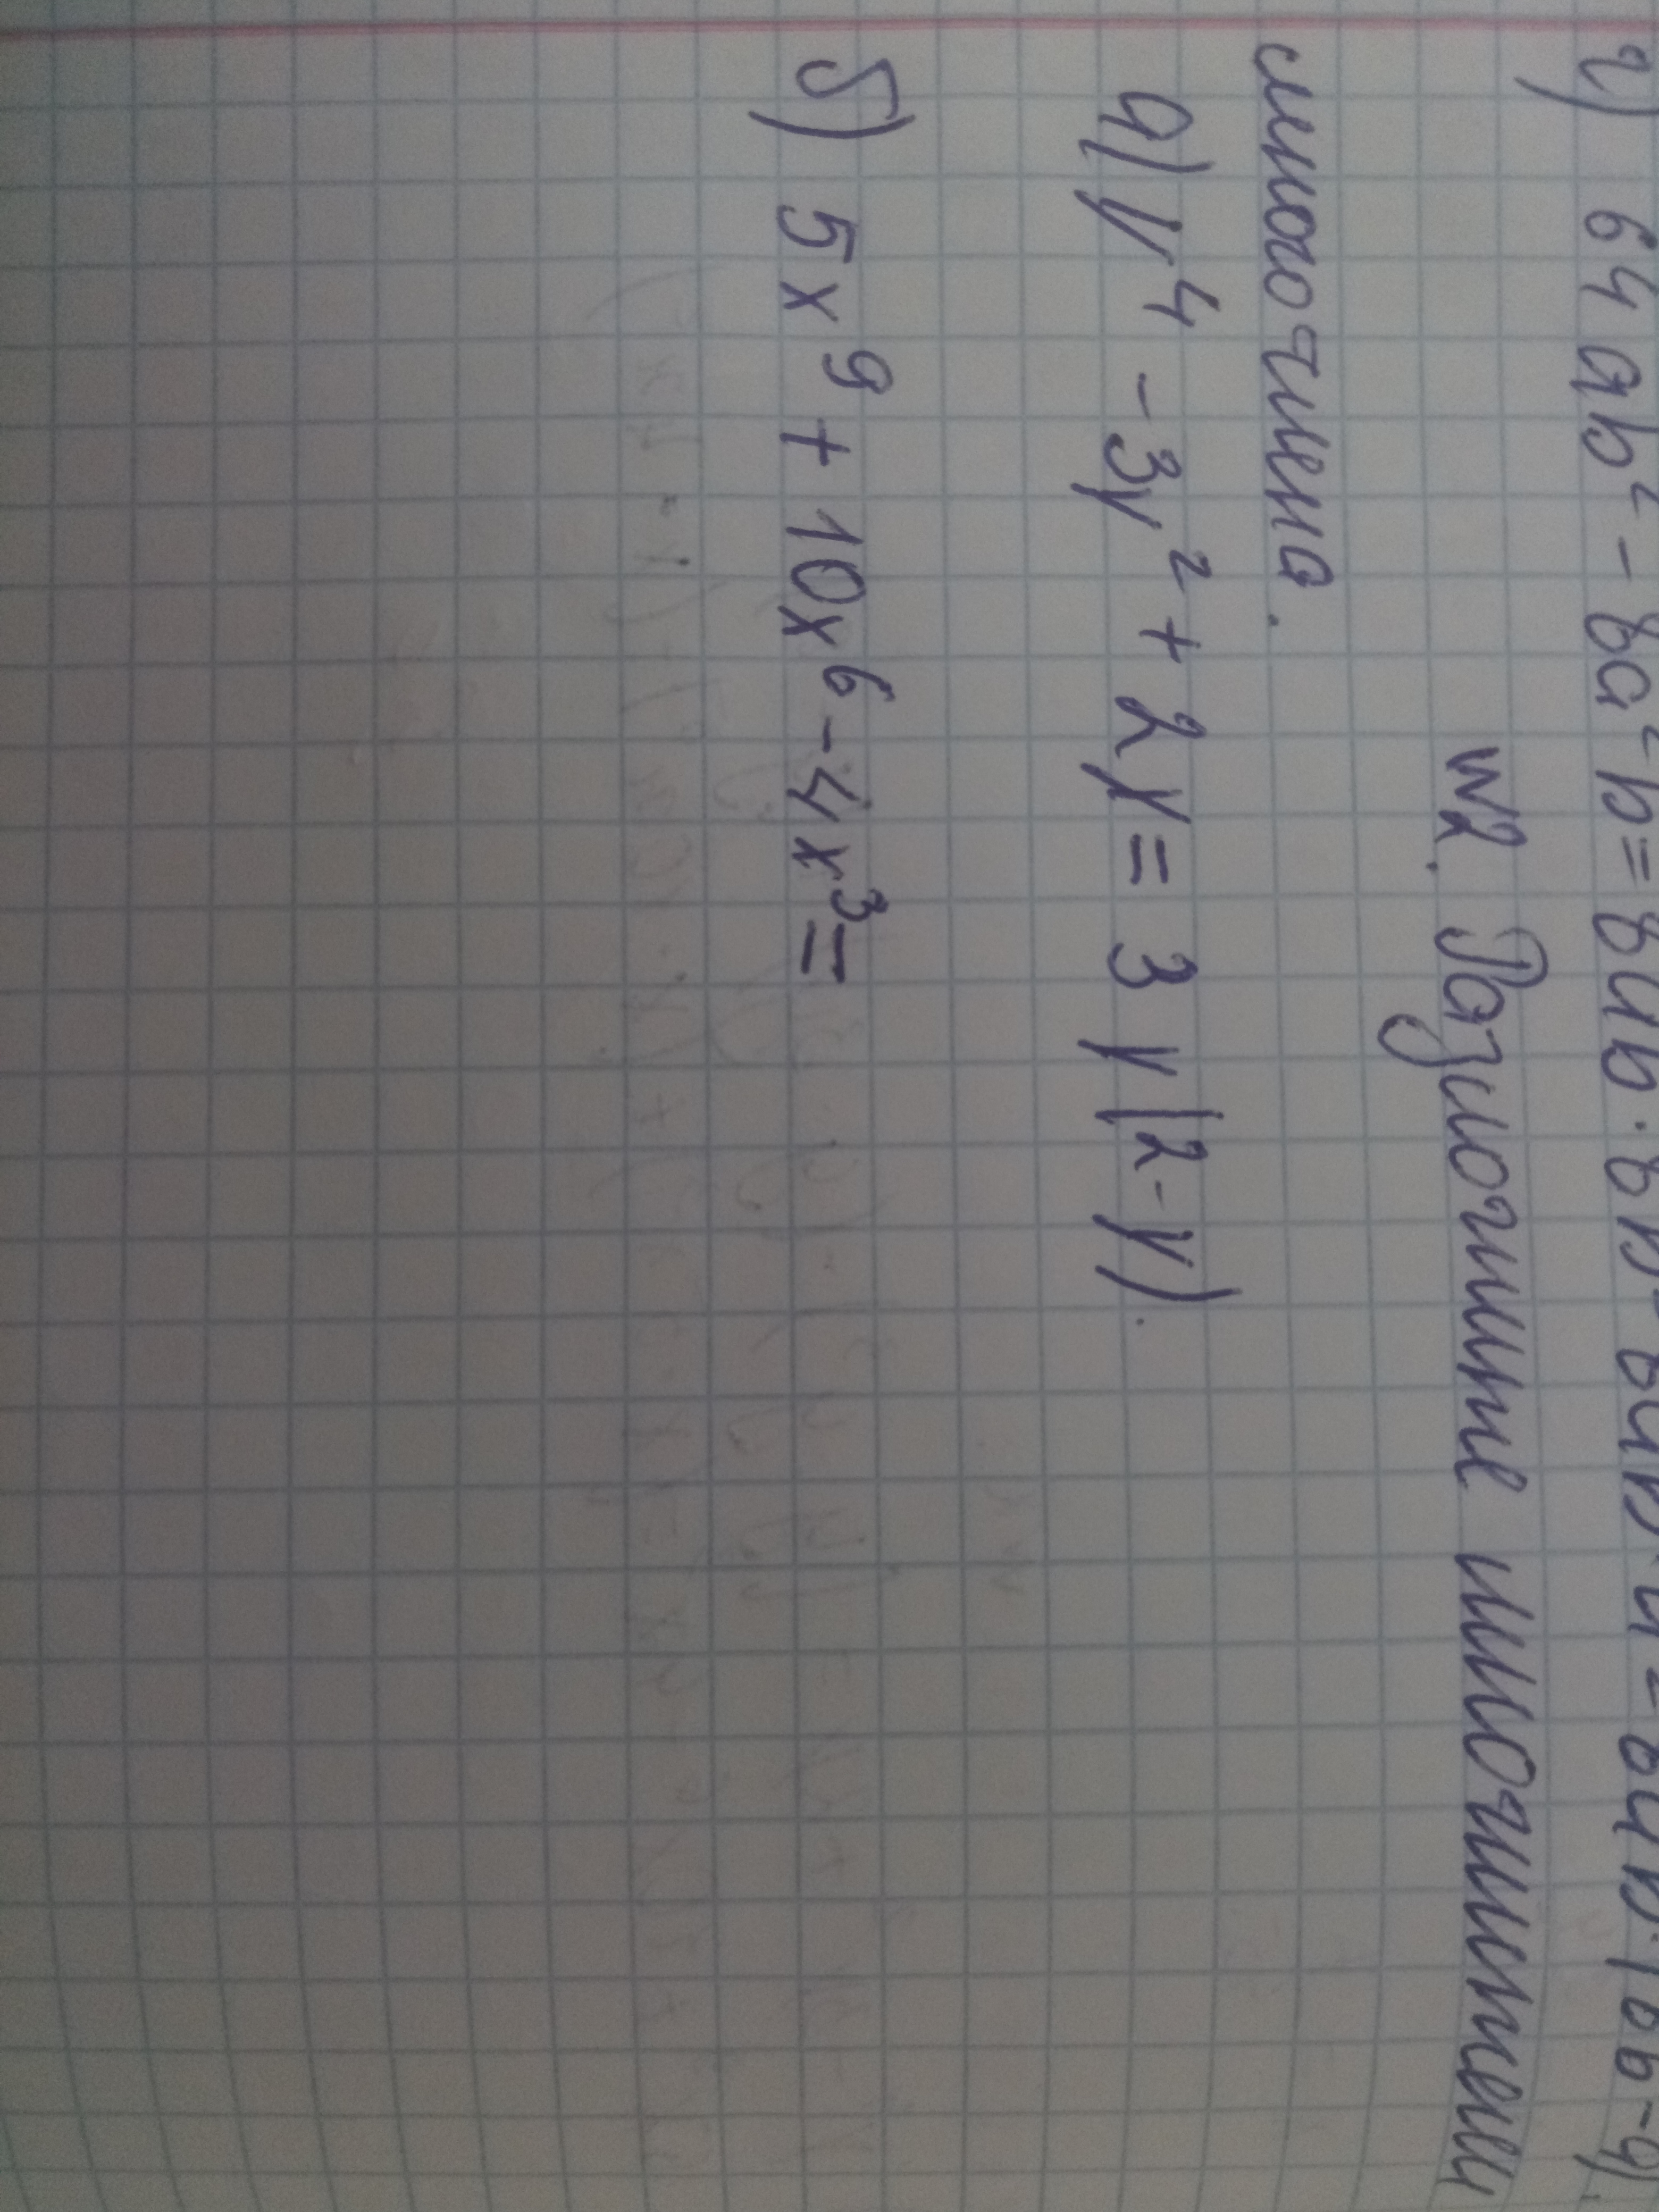 г) 64ab² - 8a²b = 8ab · 8b - 8ab · a = 8ab · (8b - a)
№2. Разложите многочлены
многочлена.
а) y⁴ - 3y² + 2y = 3y(2-y).
б) 5x⁹ + 10x⁶ - 4x³ =